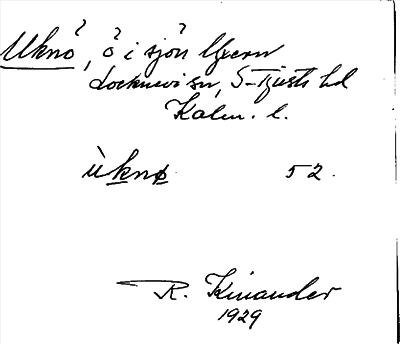 Uknö, ö i sjön Yxern
Locknevi sn, S-Tjusts hd
Kalm. l.
ùknø 52.
R. Kinander
1929